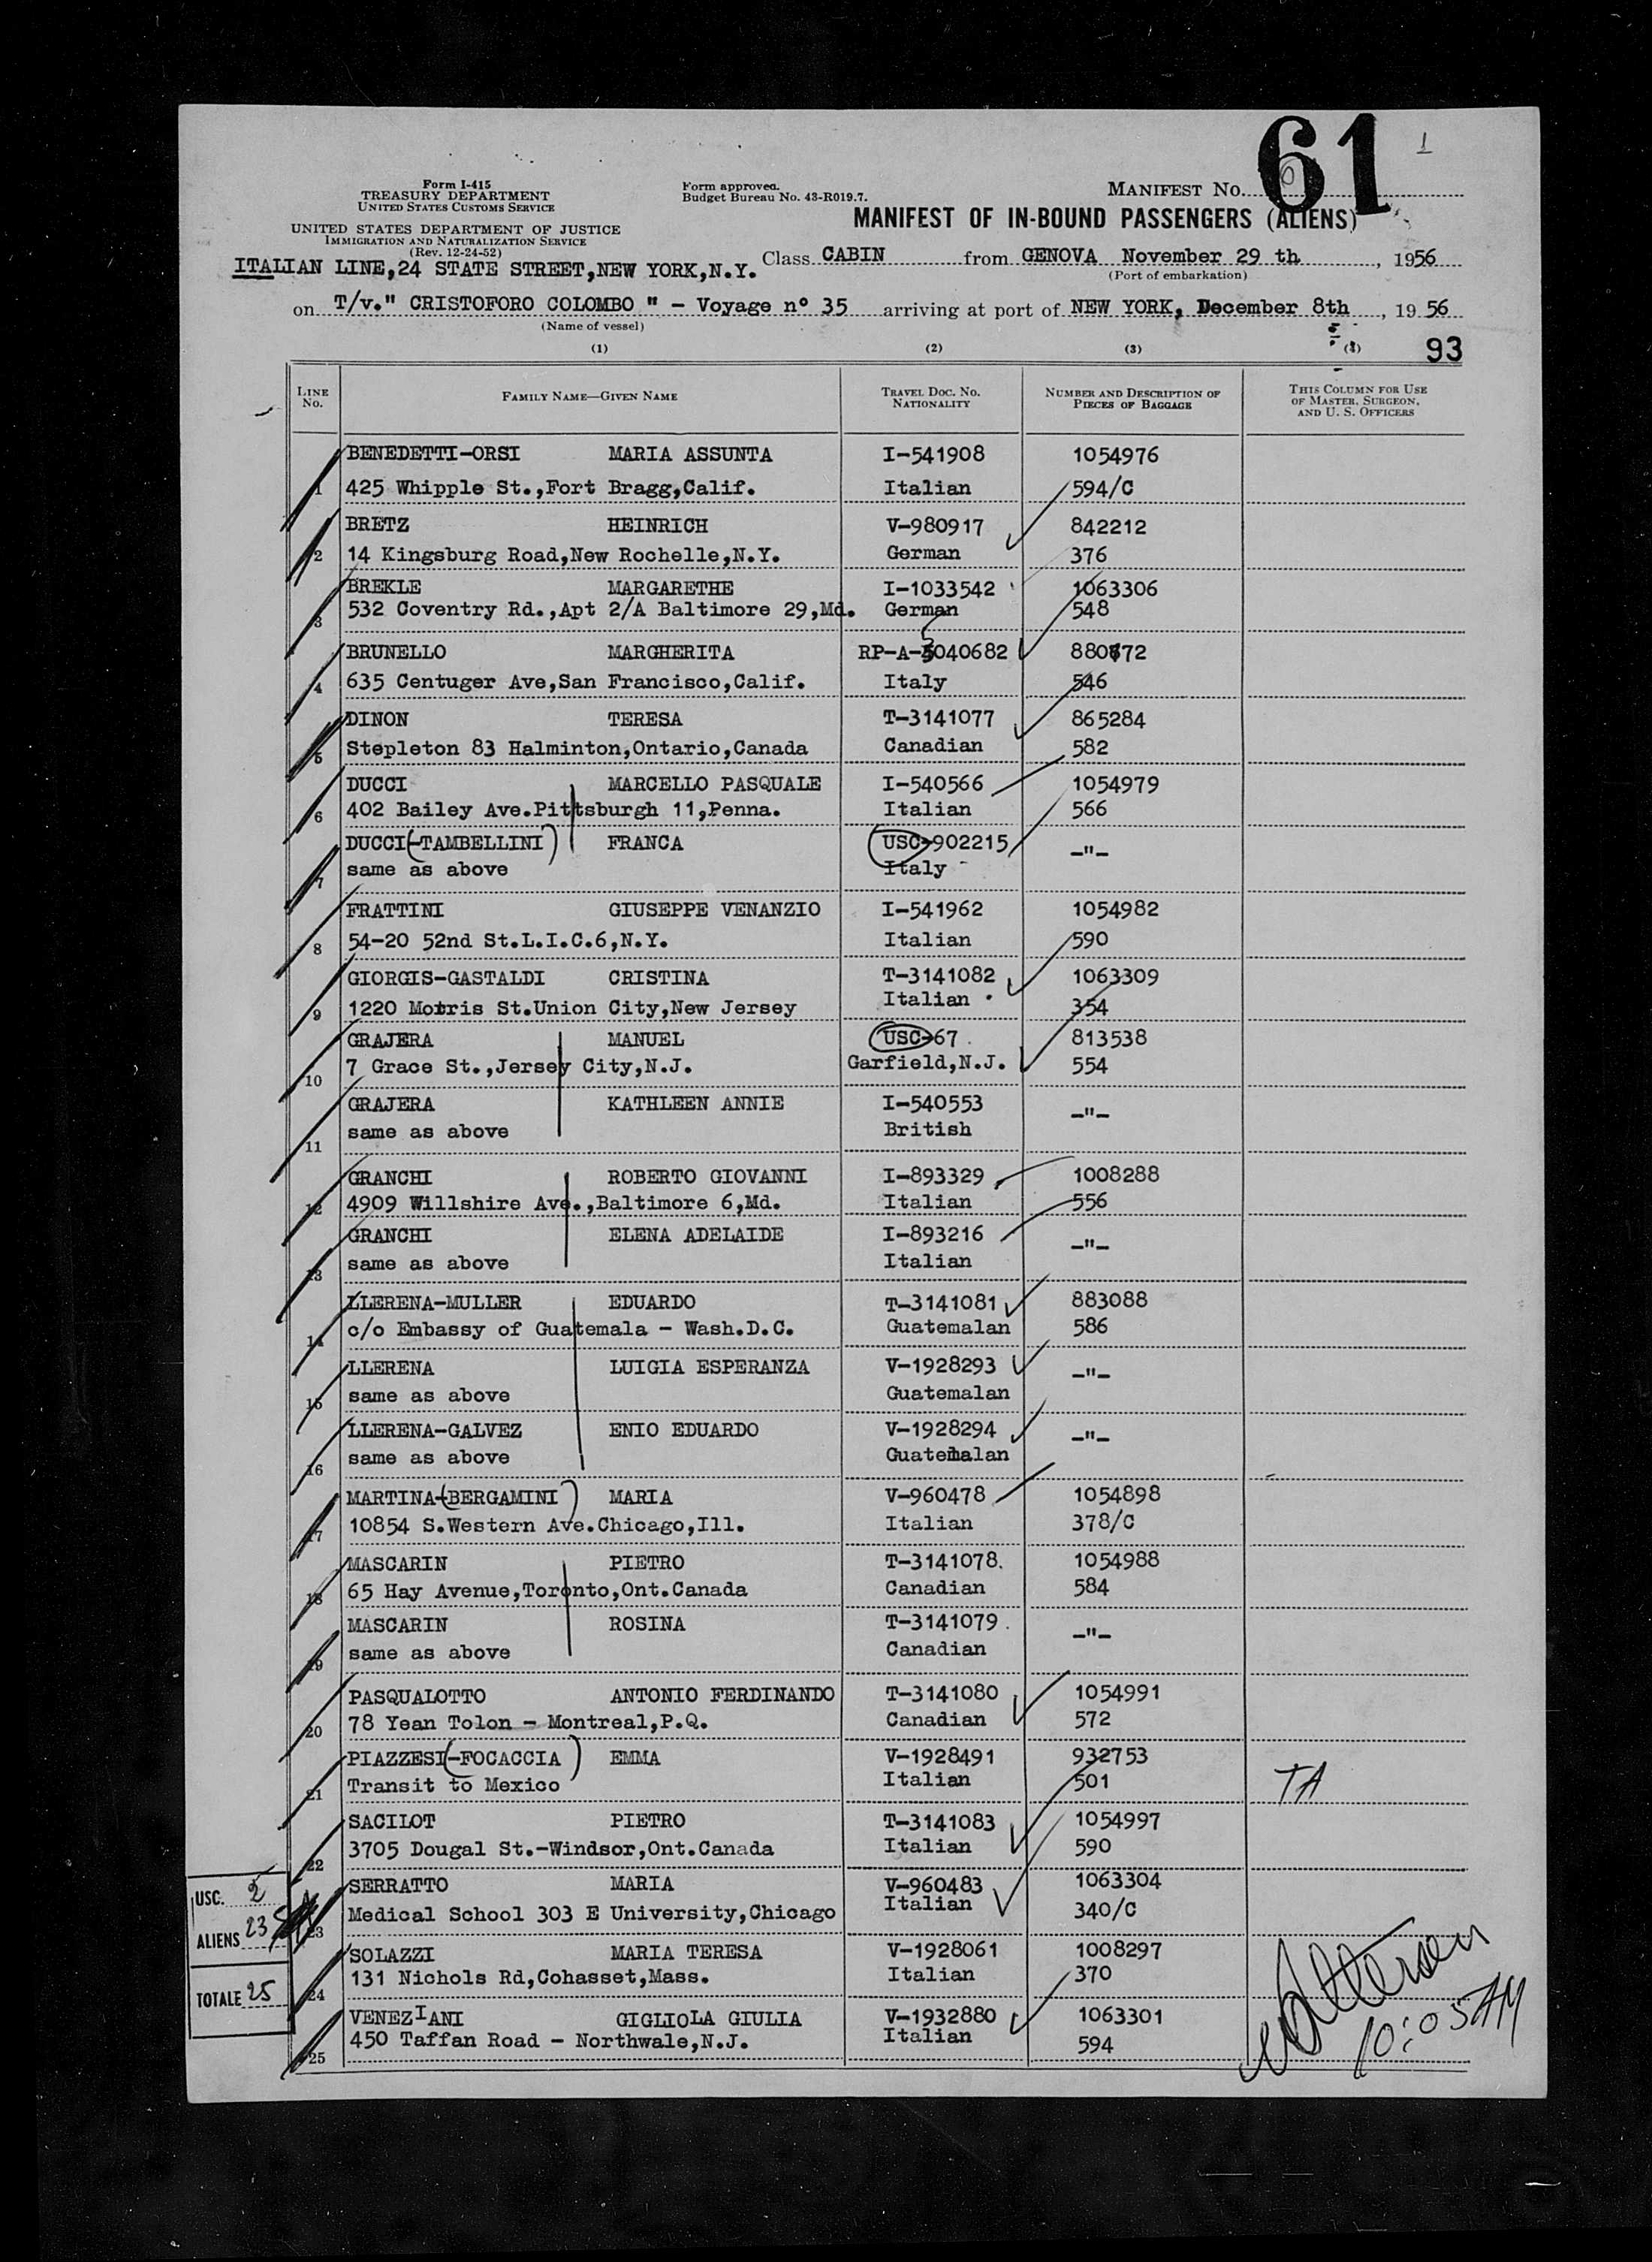 61
1
Form I-415
TREASURY DEPARTMENT
UNITED STATES CUSTOMS SERVICE
Form approved.
Budget Bureau No. 43-R019.7.
MANIFEST NO.
UNITED STATES DEPARTMENT OF JUSTICE
IMMIGRATION AND NATURALIZATION SERVICE
(Rev. 12-24-52)
MANIFEST OF IN-BOUND PASSENGERS (ALIENS)
ITALIAN LINE,24 STATE STREET,NEW YORK,N.Y. Class CABIN from GENOVA November 29 th, 1956
(Port of embarkation)
on T/v." CRISTOFORO COLOMBO " - Voyage n° 35 arriving at port of NEW YORK, December 8th, 1956
(Name of vessel)
(1) (2) (3) (4) 93
LINE NO. FAMILY NAME—GIVEN NAME TRAVEL DOC. NO. NATIONALITY NUMBER AND DESCRIPTION OF PIECES OF BAGGAGE THIS COLUMN FOR USE OF MASTER, SURGEON, AND U. S. OFFICERS
BENEDETTI-ORSI MARIA ASSUNTA I-541908 1054976
1 425 Whipple St.,Fort Bragg,Calif. Italian 594/C
BRETZ HEINRICH V-980917 842212
2 14 Kingsburg Road,New Rochelle,N.Y. German 376
BREKLE MARGARETHE I-1033542 1063306
3 532 Coventry Rd.,Apt 2/A Baltimore 29,Md. German 548
BRUNELLO MARGHERITA RP-A-5040682 880772
4 635 Centuger Ave,San Francisco,Calif. Italy 546
DINON TERESA T-3141077 865284
5 Stepleton 83 Halminton,Ontario,Canada Canadian 582
DUCCI MARCELLO PASQUALE I-540566 1054979
6 402 Bailey Ave.Pittsburgh 11,Penna. Italian 566
DUCCI(-TAMBELLINI) FRANCA USC-902215 -"-
7 same as above Italy
FRATTINI GIUSEPPE VENANZIO I-541962 1054982
8 54-20 52nd St.L.I.C.6,N.Y. Italian 590
GIORGIS-GASTALDI CRISTINA T-3141082 1063309
9 1220 Motris St.Union City,New Jersey Italian 354
GRAJERA MANUEL USC-67 813538
10 7 Grace St.,Jersey City,N.J. Garfield,N.J. 554
GRAJERA KATHLEEN ANNIE I-540553 -"-
11 same as above British
GRANCHI ROBERTO GIOVANNI I-893329 1008288
12 4909 Willshire Ave.,Baltimore 6,Md. Italian 556
GRANCHI ELENA ADELAIDE I-893216 -"-
13 same as above Italian
LLERENA-MULLER EDUARDO T-3141081 883088
14 c/o Embassy of Guatemala - Wash.D.C. Guatemalan 586
LLERENA LUIGIA ESPERANZA V-1928293 -"-
15 same as above Guatemalan
LLERENA-GALVEZ ENIO EDUARDO V-1928294 -"-
16 same as above Guatemalan
MARTINA(-BERGAMINI) MARIA V-960478 1054898
17 10854 S.Western Ave.Chicago,Ill. Italian 378/C
MASCARIN PIETRO T-3141078. 1054988
18 65 Hay Avenue,Toronto,Ont.Canada Canadian 584
MASCARIN ROSINA T-3141079. -"-
19 same as above Canadian
PASQUALOTTO ANTONIO FERDINANDO T-3141080 1054991
20 78 Yean Tolon - Montreal,P.Q. Canadian 572
PIAZZESI(-FOCACCIA) EMMA V-1928491 932753
21 Transit to Mexico Italian 501 TA
SACILOT PIETRO T-3141083 1054997
22 3705 Dougal St.-Windsor,Ont.Canada Italian 590
SERRATTO MARIA V-960483 1063304
23 Medical School 303 E University,Chicago Italian 340/C
SOLAZZI MARIA TERESA V-1928061 1008297
24 131 Nichols Rd,Cohasset,Mass. Italian 370
VENEZIANI GIGLIOLA GIULIA V-1932880 1063301
25 450 Taffan Road - Northwale,N.J. Italian 594
USC. 2
ALIENS 23
TOTALE 25
10:05 AM